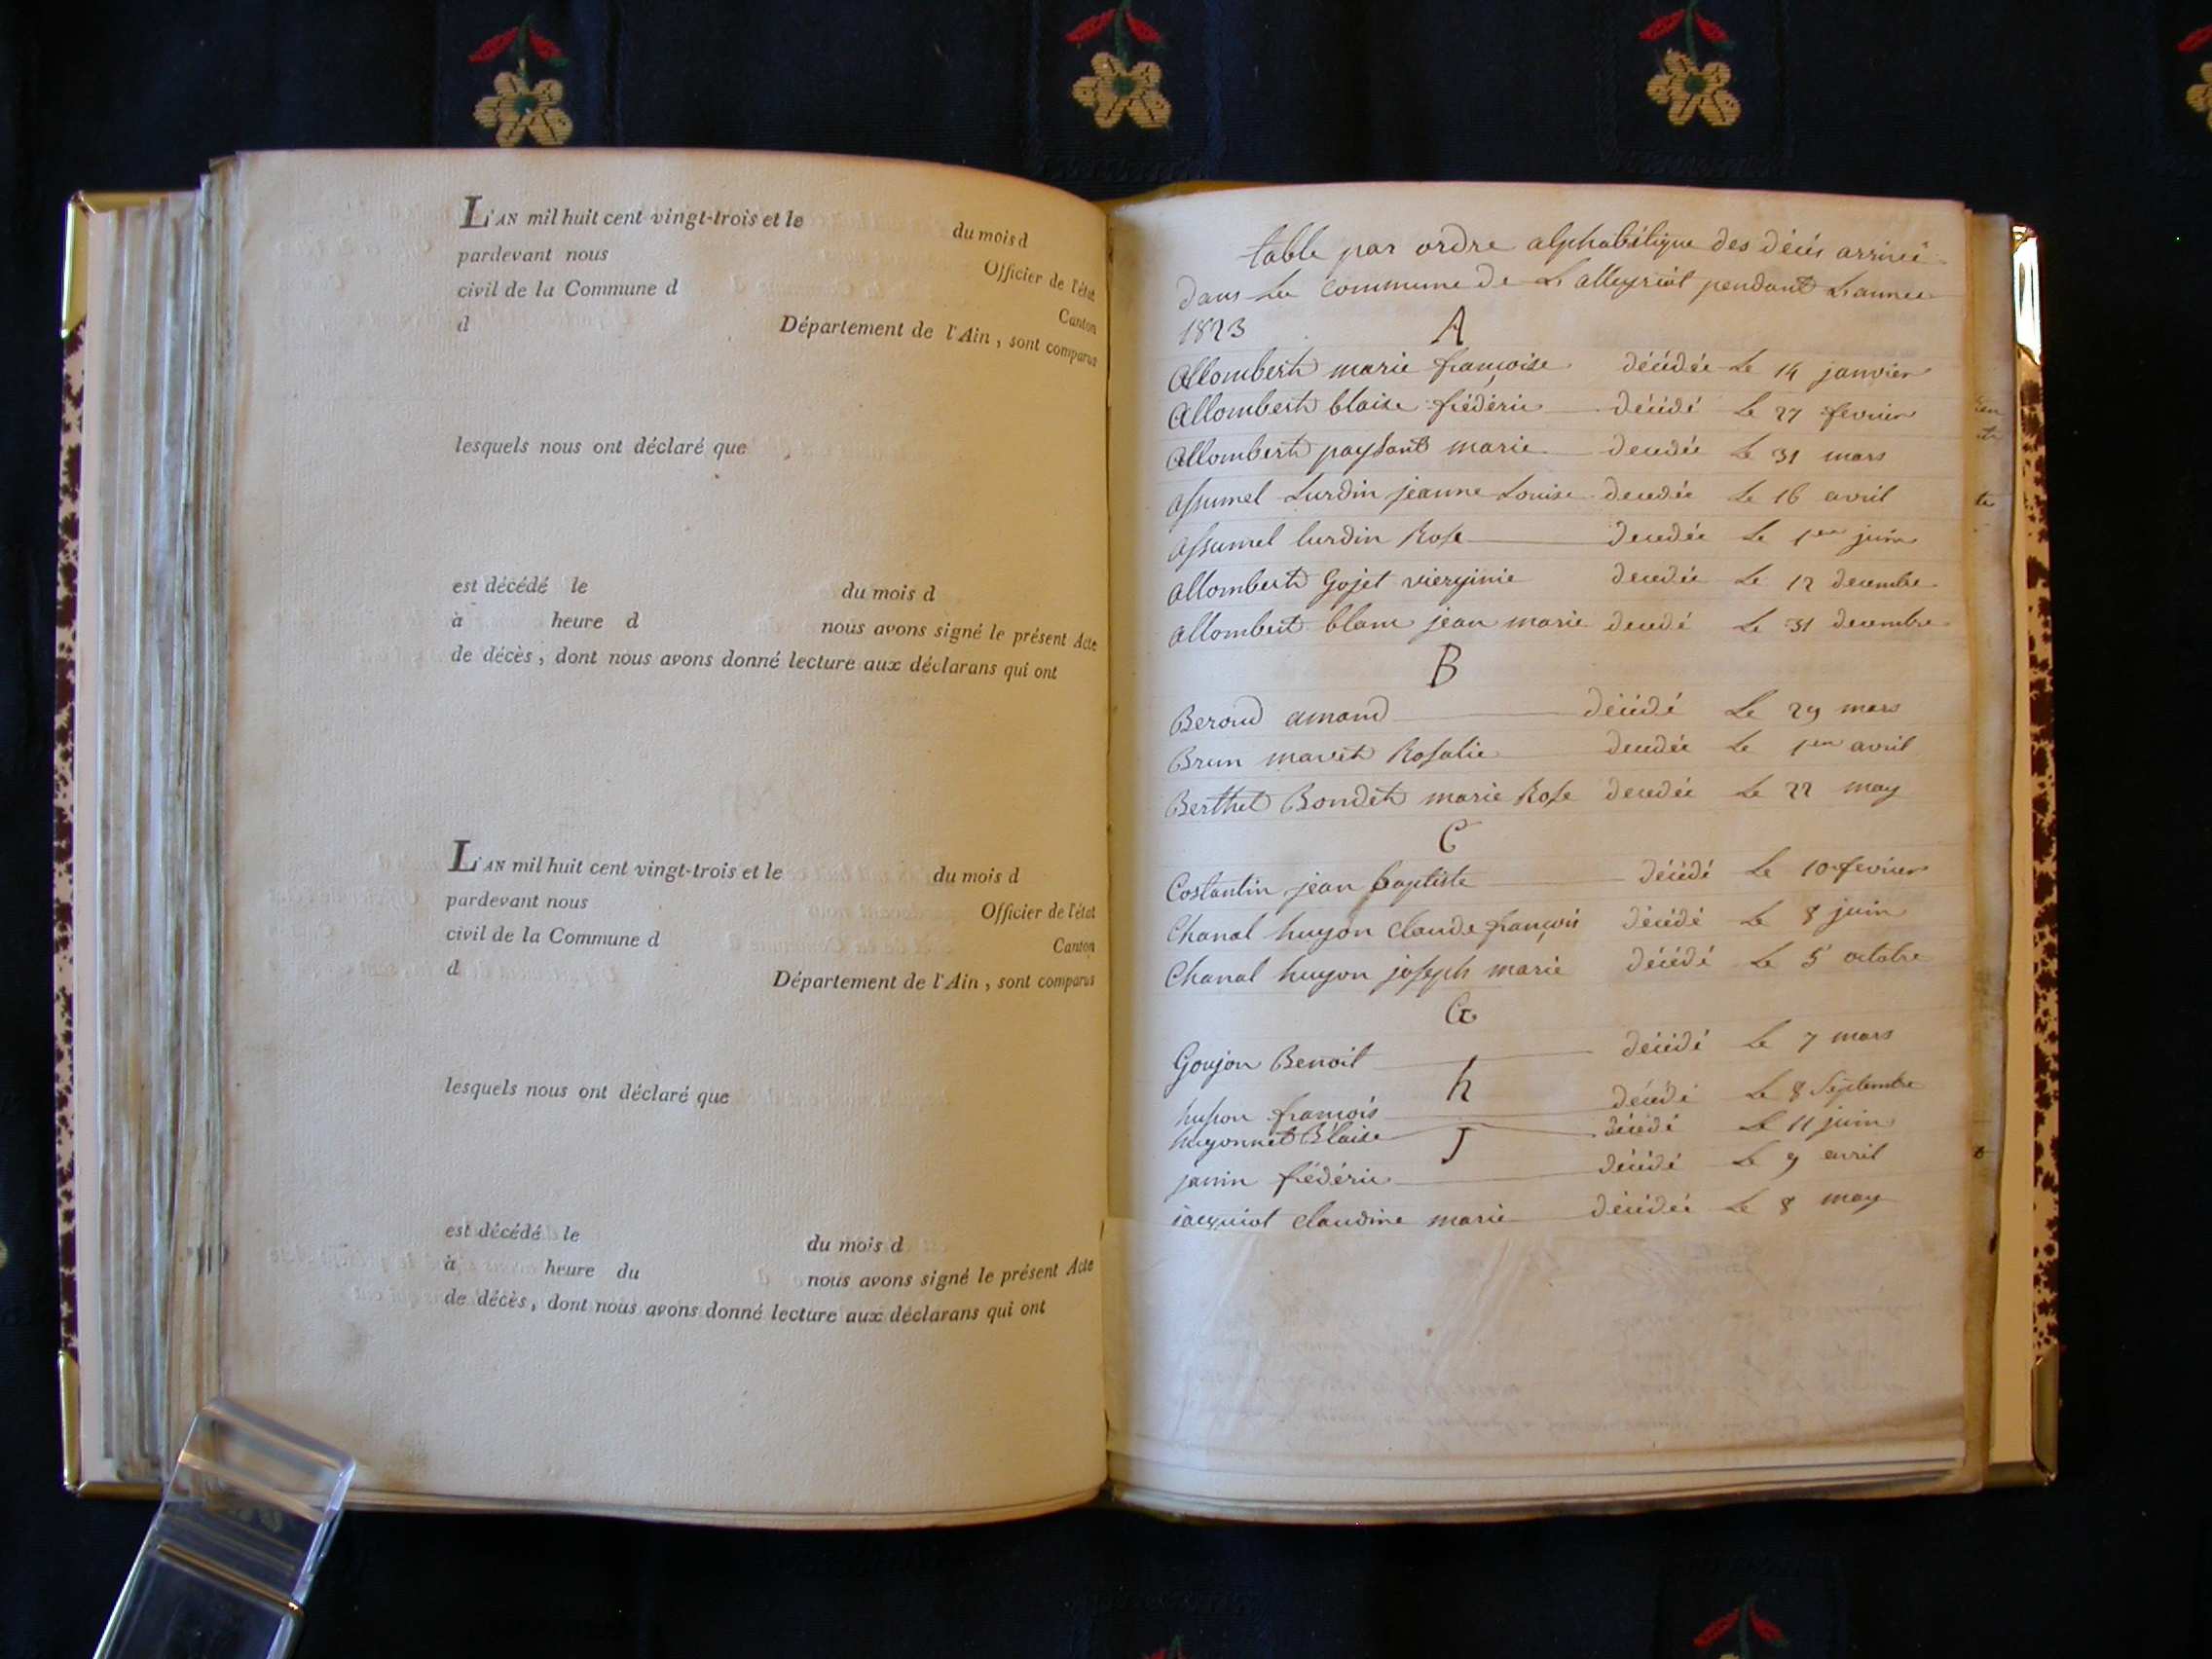 L'AN mil huit cent vingt-trois et le du mois d
pardevant nous Officier de l'état
civil de la Commune d Canton
d Département de l'Ain, sont comparus
lesquels nous ont déclaré que
est décédé le du mois d
à heure d nous avons signé le présent Acte
de décès, dont nous avons donné lecture aux déclarans qui ont
L'AN mil huit cent vingt-trois et le du mois d
pardevant nous Officier de l'état
civil de la Commune d Canton
d Département de l'Ain, sont comparus
lesquels nous ont déclaré que
est décédé le du mois d
à heure du nous avons signé le présent Acte
de décès, dont nous avons donné lecture aux déclarans qui ont
table par ordre alphabétique des décès arrivé
dans la Commune de Lalleyriat pendant L'annee
1823
A
Allombert marie françoise décédée Le 14 janvier
Allombert blaise frédéric décédé Le 27 fevrier
Allombert paysant marie decedée Le 31 mars
Assumel Lurdin jeanne Louise decedée Le 16 avril
Assumel lurdin Rose decedée Le 1er juin
Allombert Gojet vierginie decedée Le 12 decembre
Allombert blanc jean marie decedé Le 31 decembre
B
Beroud amand décédé Le 29 mars
Brun mavet Rosalie decedée Le 1er avril
Berthet Bondet marie Rose decedée Le 22 may
C
Costantin jean baptiste décédé Le 10 fevrier
Chanal hugon claude françois décédé Le 8 juin
Chanal hugon joseph marie décédé Le 5 octobre
G
Goujon Benoit décédé Le 7 mars
h
husson françois décédé Le 8 Septembre
hugonnet Blaise décédé Le 11 juin
J
janin frédéric décédé Le 9 avril
jacquiot claudine marie décédée Le 8 may